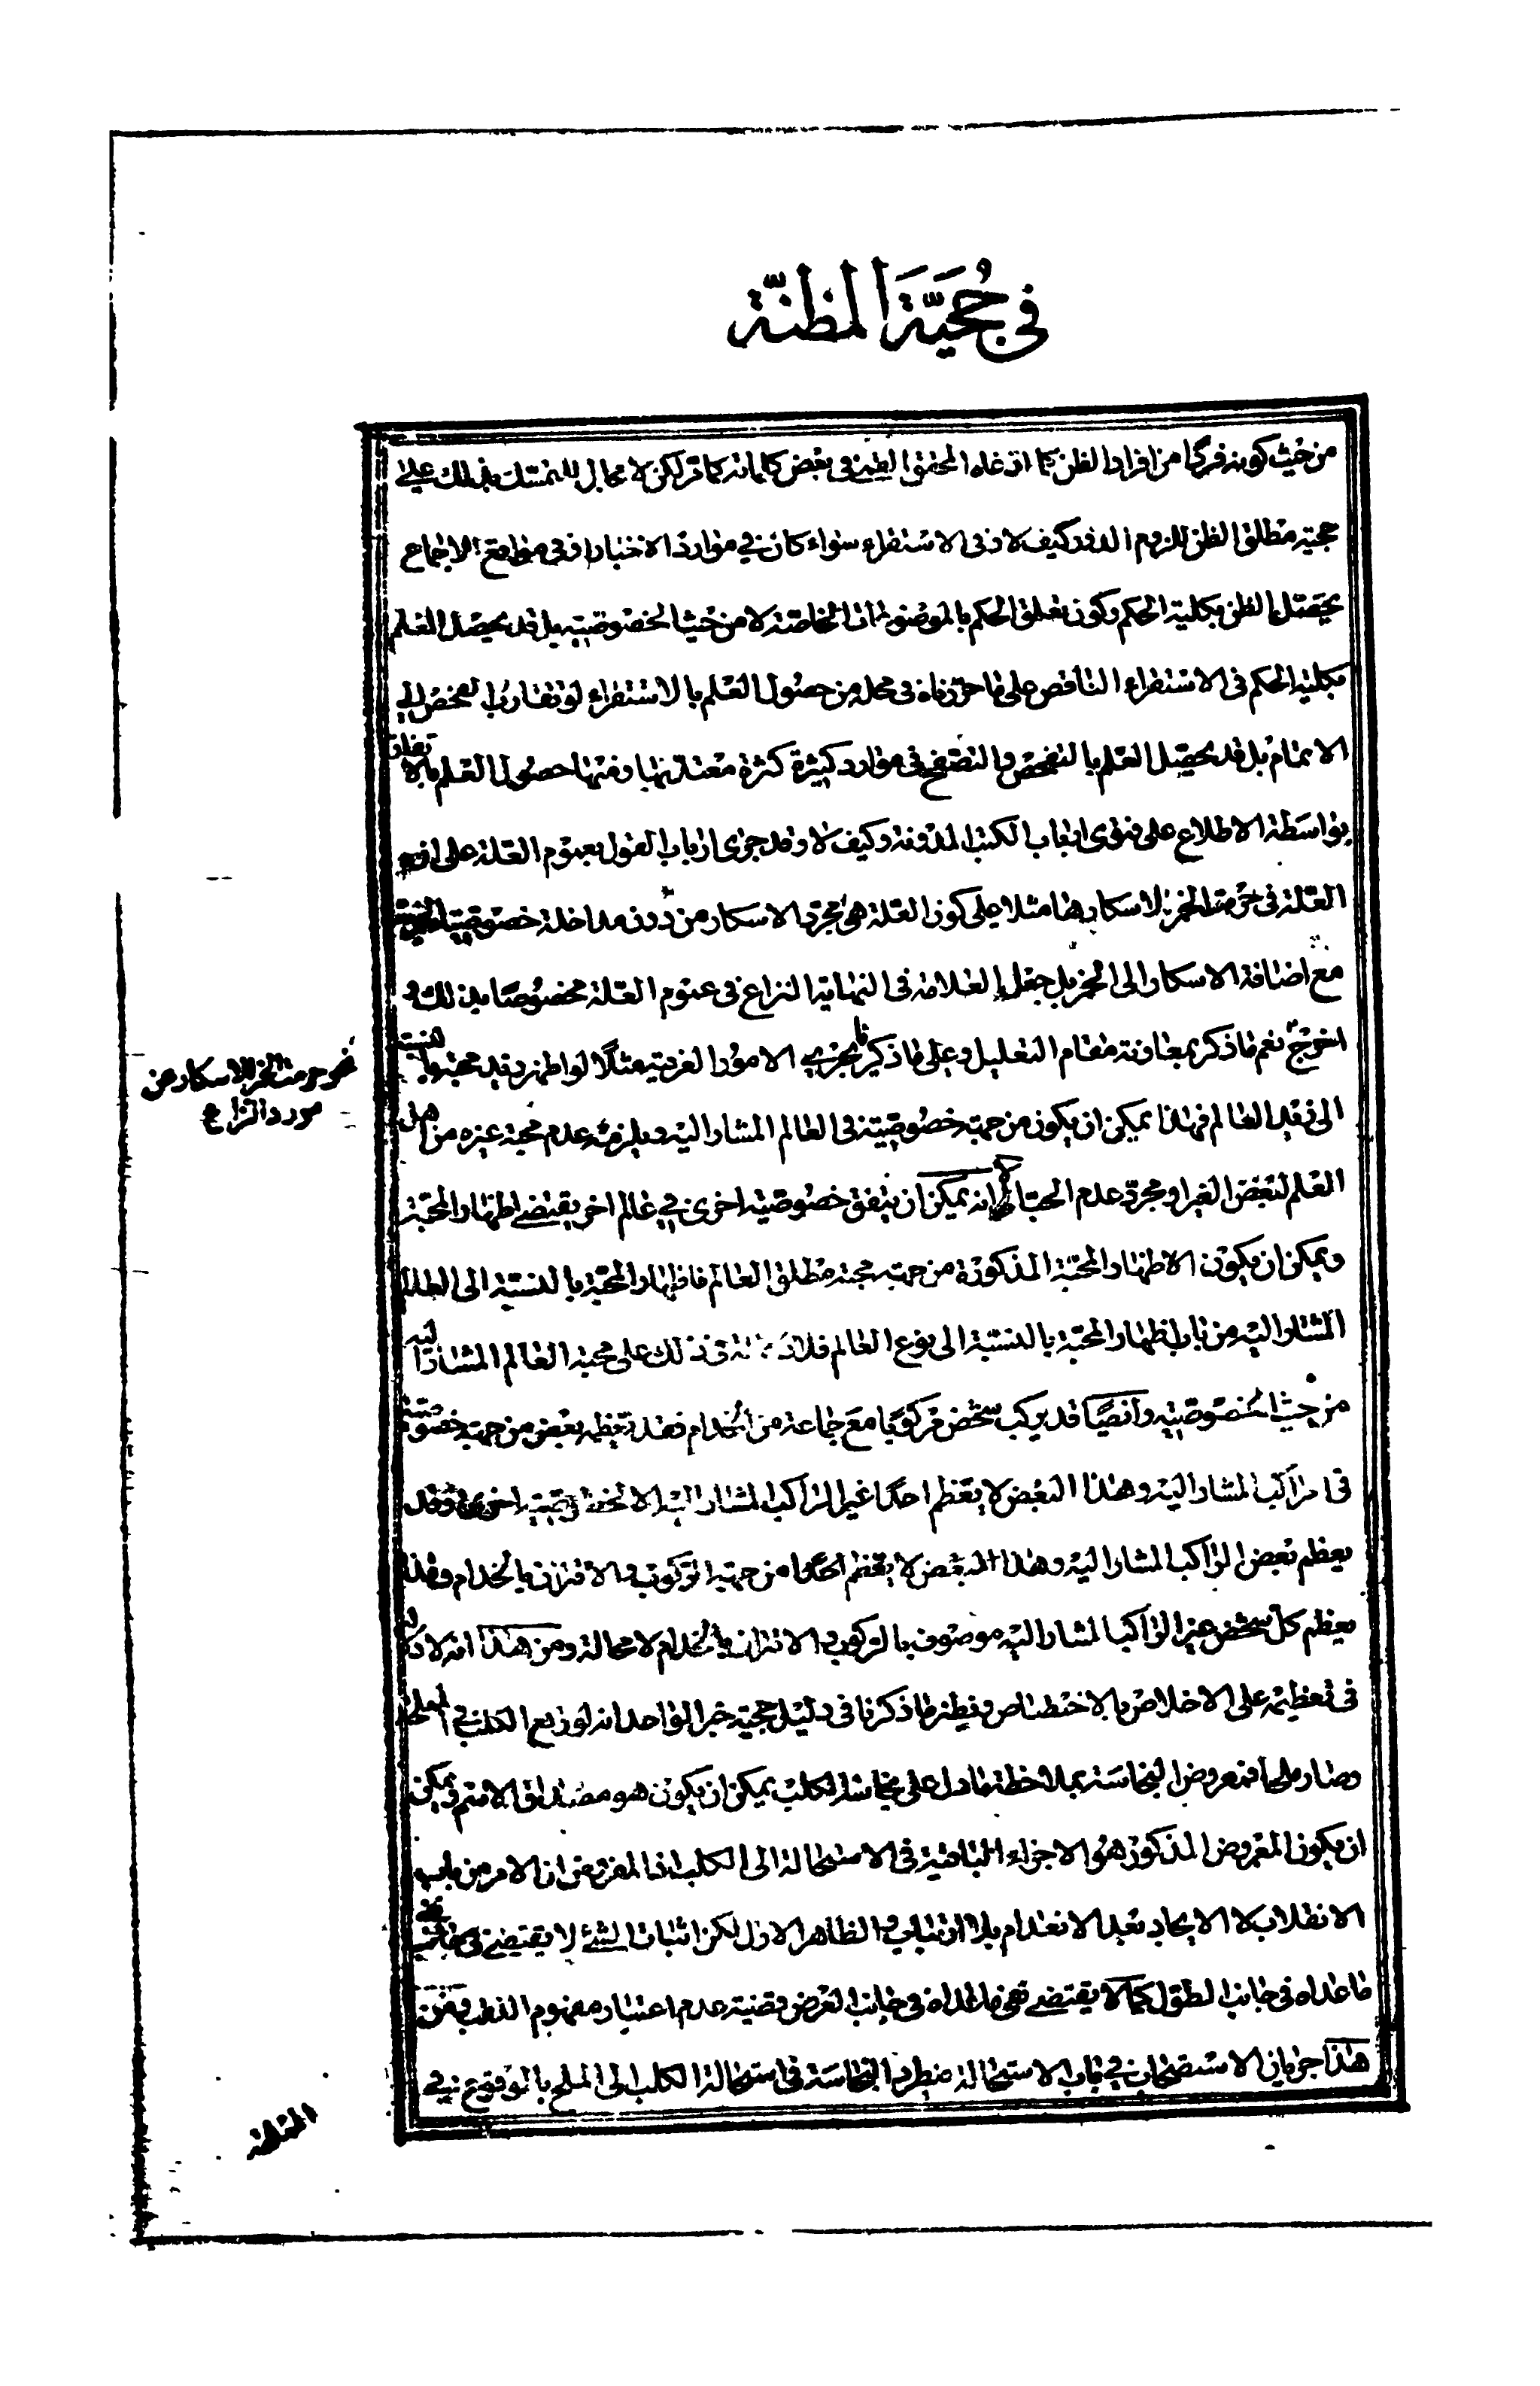 في حُجّيَّة المظنّة
من حيث كونه فردا من افراد الظن كما ادعاه المحقق القمي في بعض كلماته كما مر لكن لا مجال للتمسك بذلك على
حجية مطلق الظن للزوم الدور كيف لا وفى الاستقراء سواء كان في موارد الاخبار او في مواقع الاجماع
يحصّل الظن بكلية الحكم وكون تعلق الحكم بالموضوعات الخاصّة لا من حيث الخصوصيّة بل قد يحصل العلم
بكلية الحكم فى الاستقراء الناقص على ما حررناه في محله من حصول العلم بالاستقراء لو تقارب الفحص الى
الاتمام بل قد يحصل العلم بالتفحص والتصفح في موارد كثيرة كثرة معتد بها ومنها حصول العلم بالاتفاق
بواسطة الاطلاع على فتوى ارباب الكتب المدونة وكيف لا وقد جرى ارباب القول بعموم العلة على
العلّة في حرمت الخمر لاسكارها مثلا على كون العلة هى مجرد الاسكار من دون مداخلة خصوصية
مع اضافة الاسكار الى الخمر بل جعل العلامة فى النهاية النزاع فى عموم العلة مخصوصا بذلك و
اخرج نعم ما ذكر بمعاونة مقام التعليل وعلى ما ذكر يجرى الامور العرفية مثلا لو اظهر زيد محبته بالنسبة
الى زيد العالم فهذا يمكن ان يكون من جهة خصوصيّة فى العالم المشار اليه ويلزمه عدم محبة غيره من اهل
العلم لبعض الغير او مجرد عدم الحب الا انه يمكن ان يتفق خصوصية اخرى في عالم اخر يقتضى اظهار المحبّة
ويمكن ان يكون الاظهار المحبّة المذكورة من جهة محبة مطلق العالم فاظهار المحبّة بالنسبة الى العالم
المشار اليه من باب اظهار المحبّة بالنسبة الى نوع العالم فلا دلالة في ذلك على محبة العالم المشار اليه
من حيث الخصوصيّة وايضا قد يركب شخص مركوبا مع جماعة من الخدام فقد يعظمه بعض من جهة خصوصية
فى الراكب المشار اليه وهذا البعض لا يعظم احدا غير الراكب المشار اليه الا لخصوصية اخرى وقد
يعظم بعض الراكب المشار اليه وهذا البعض لا يعظم احدا من جهة الركوب والاقتران بالخدام وهذا
يعظم كل شخص غير الراكب المشار اليه موصوف بالركوب والاقتران بالخدام لا محالة ومن هذا انه لا دلالة
فى تعظيمه على الاخلاص بالاختصاص ونظير ما ذكرنا فى دليل حجية خبر الواحد انه لو وقع الكلب في المملحة
وصار ملحا فمعروض النجاسة بملاحظة ما دل على نجاسة الكلب يمكن ان يكون هو مصداق الاسم ويمكن
ان يكون المعروض المذكور هو الاجزاء الباقية فى الاستحالة الى الكلب اذ المفروض ان الامر من باب
الانقلاب لا الايجاد بعد الانعدام بلا ارتياب والظاهر الاول لكن اثبات الشئ لا يقتضى نفى
ما عداه فى جانب الطول كما لا يقتضى نفى ما عداه فى جانب العرض وقضية عدم اعتبار مفهوم اللقب ومن
هذا جريان الاستصحاب في باب الاستحالة ضطرد النجاسة فى استحالة الكلب الى الملح بالوقوع فى
المملحة
خروج حرمت الخمر لاسكاره عن
مورد النزاع